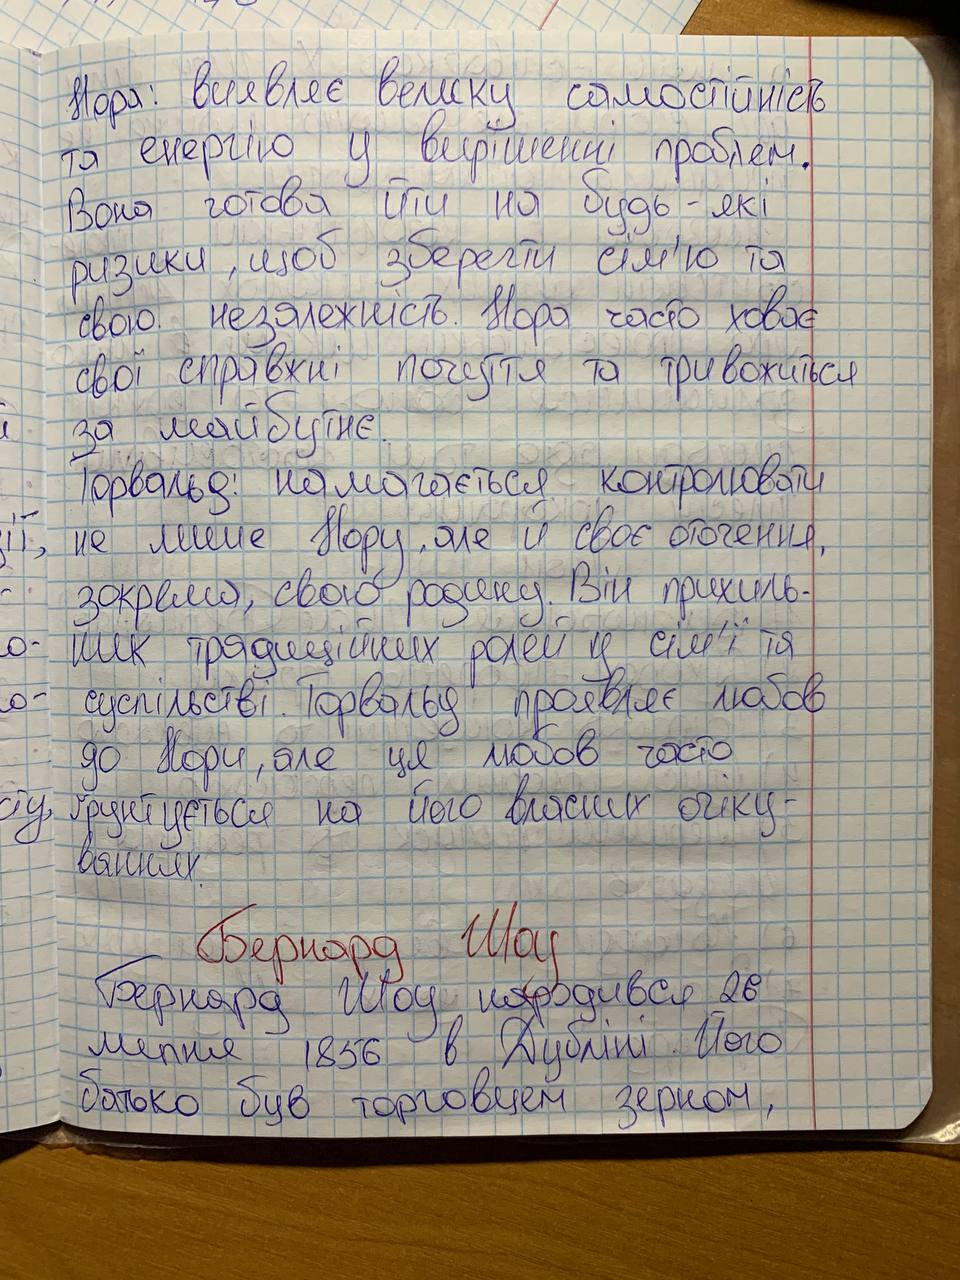 Нора: виявляє велику самостійність
та енергію у вирішенні проблем.
Вона готова йти на будь-які
ризики, щоб зберегти сім'ю та
свою незалежність. Нора часто ховає
свої справжні почуття та тривожиться
за майбутнє.
Торвальд: намагається контролювати
не лише Нору, але й своє оточення,
зокрема, свою родину. Він прихиль-
ник традиційних ролей у сім'ї та
суспільстві. Торвальд проявляє любов
до Нори, але ця любов часто
ґрунтується на його власних очіку-
ваннях.
Бернард Шоу
Бернард Шоу народився 26
липня 1856 в Дубліні. Його
батько був торговцем зерном,